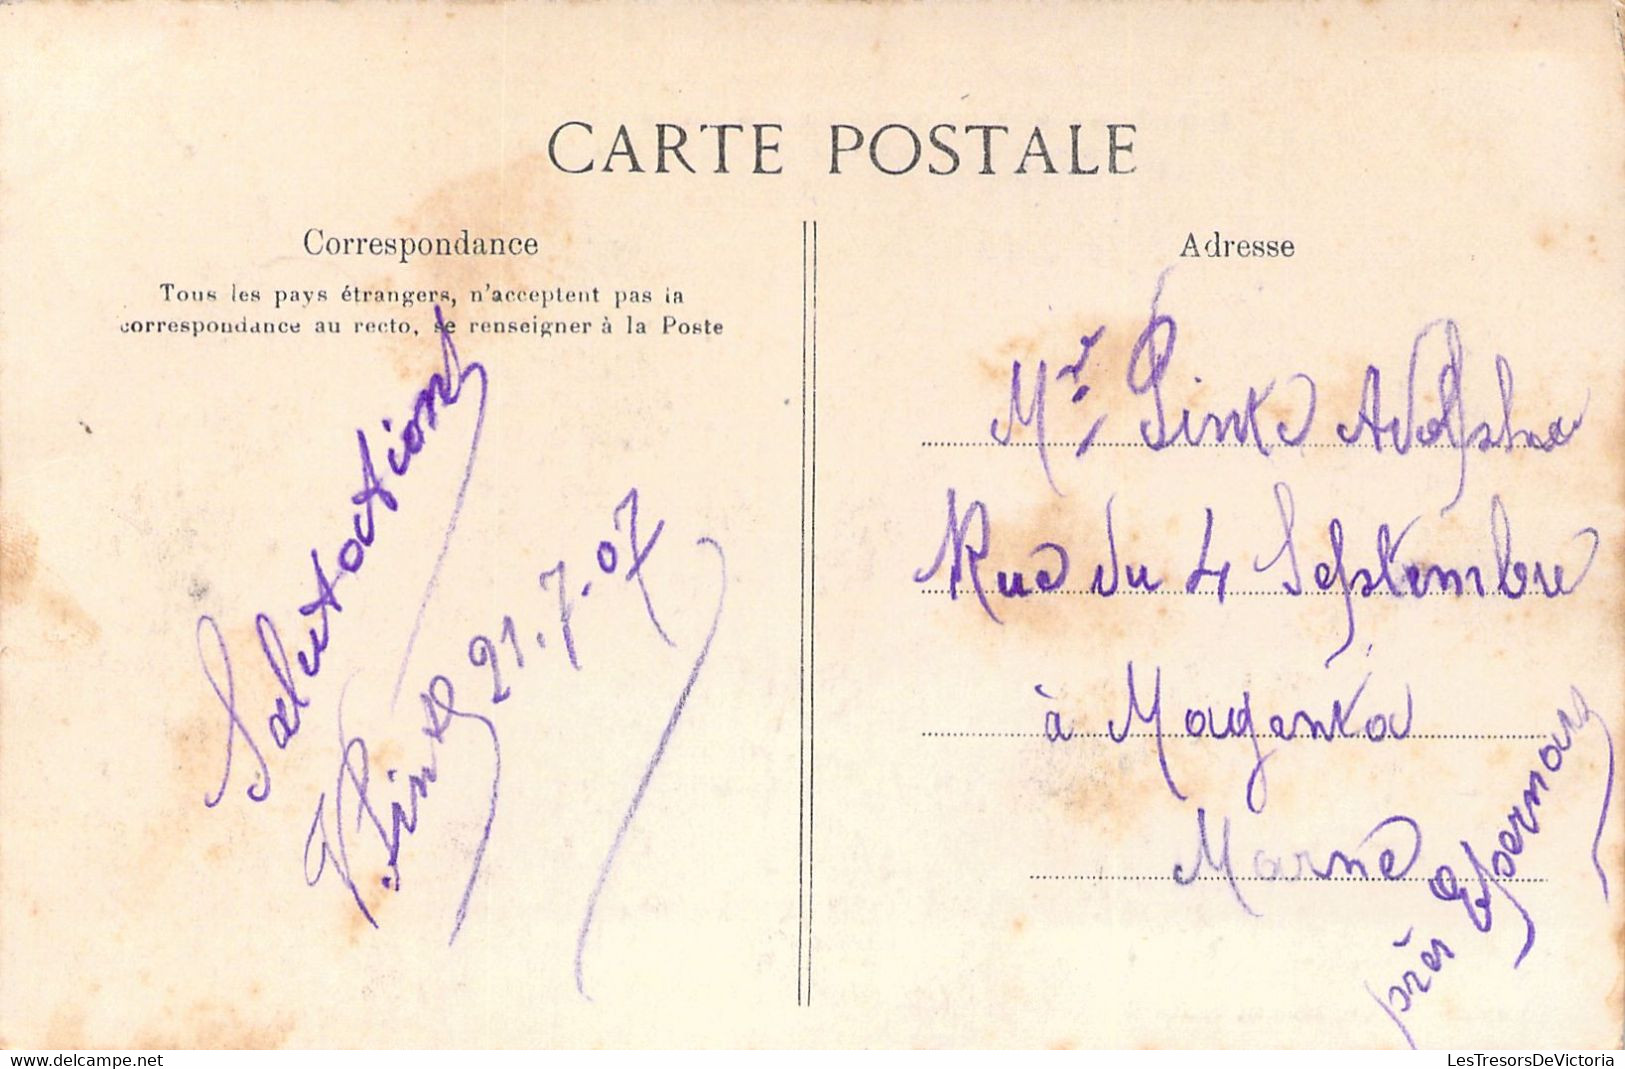 CARTE POSTALE
Correspondance
Tous les pays étrangers, n'acceptent pas la
correspondance au recto, se renseigner à la Poste
Salutations
21.7.07
Adresse
Mr Adolphe
Rue du 4 Septembre
à Magenta
Marne
près Epernay
LesTresorsDeVictoria
https://www.delcampe.net